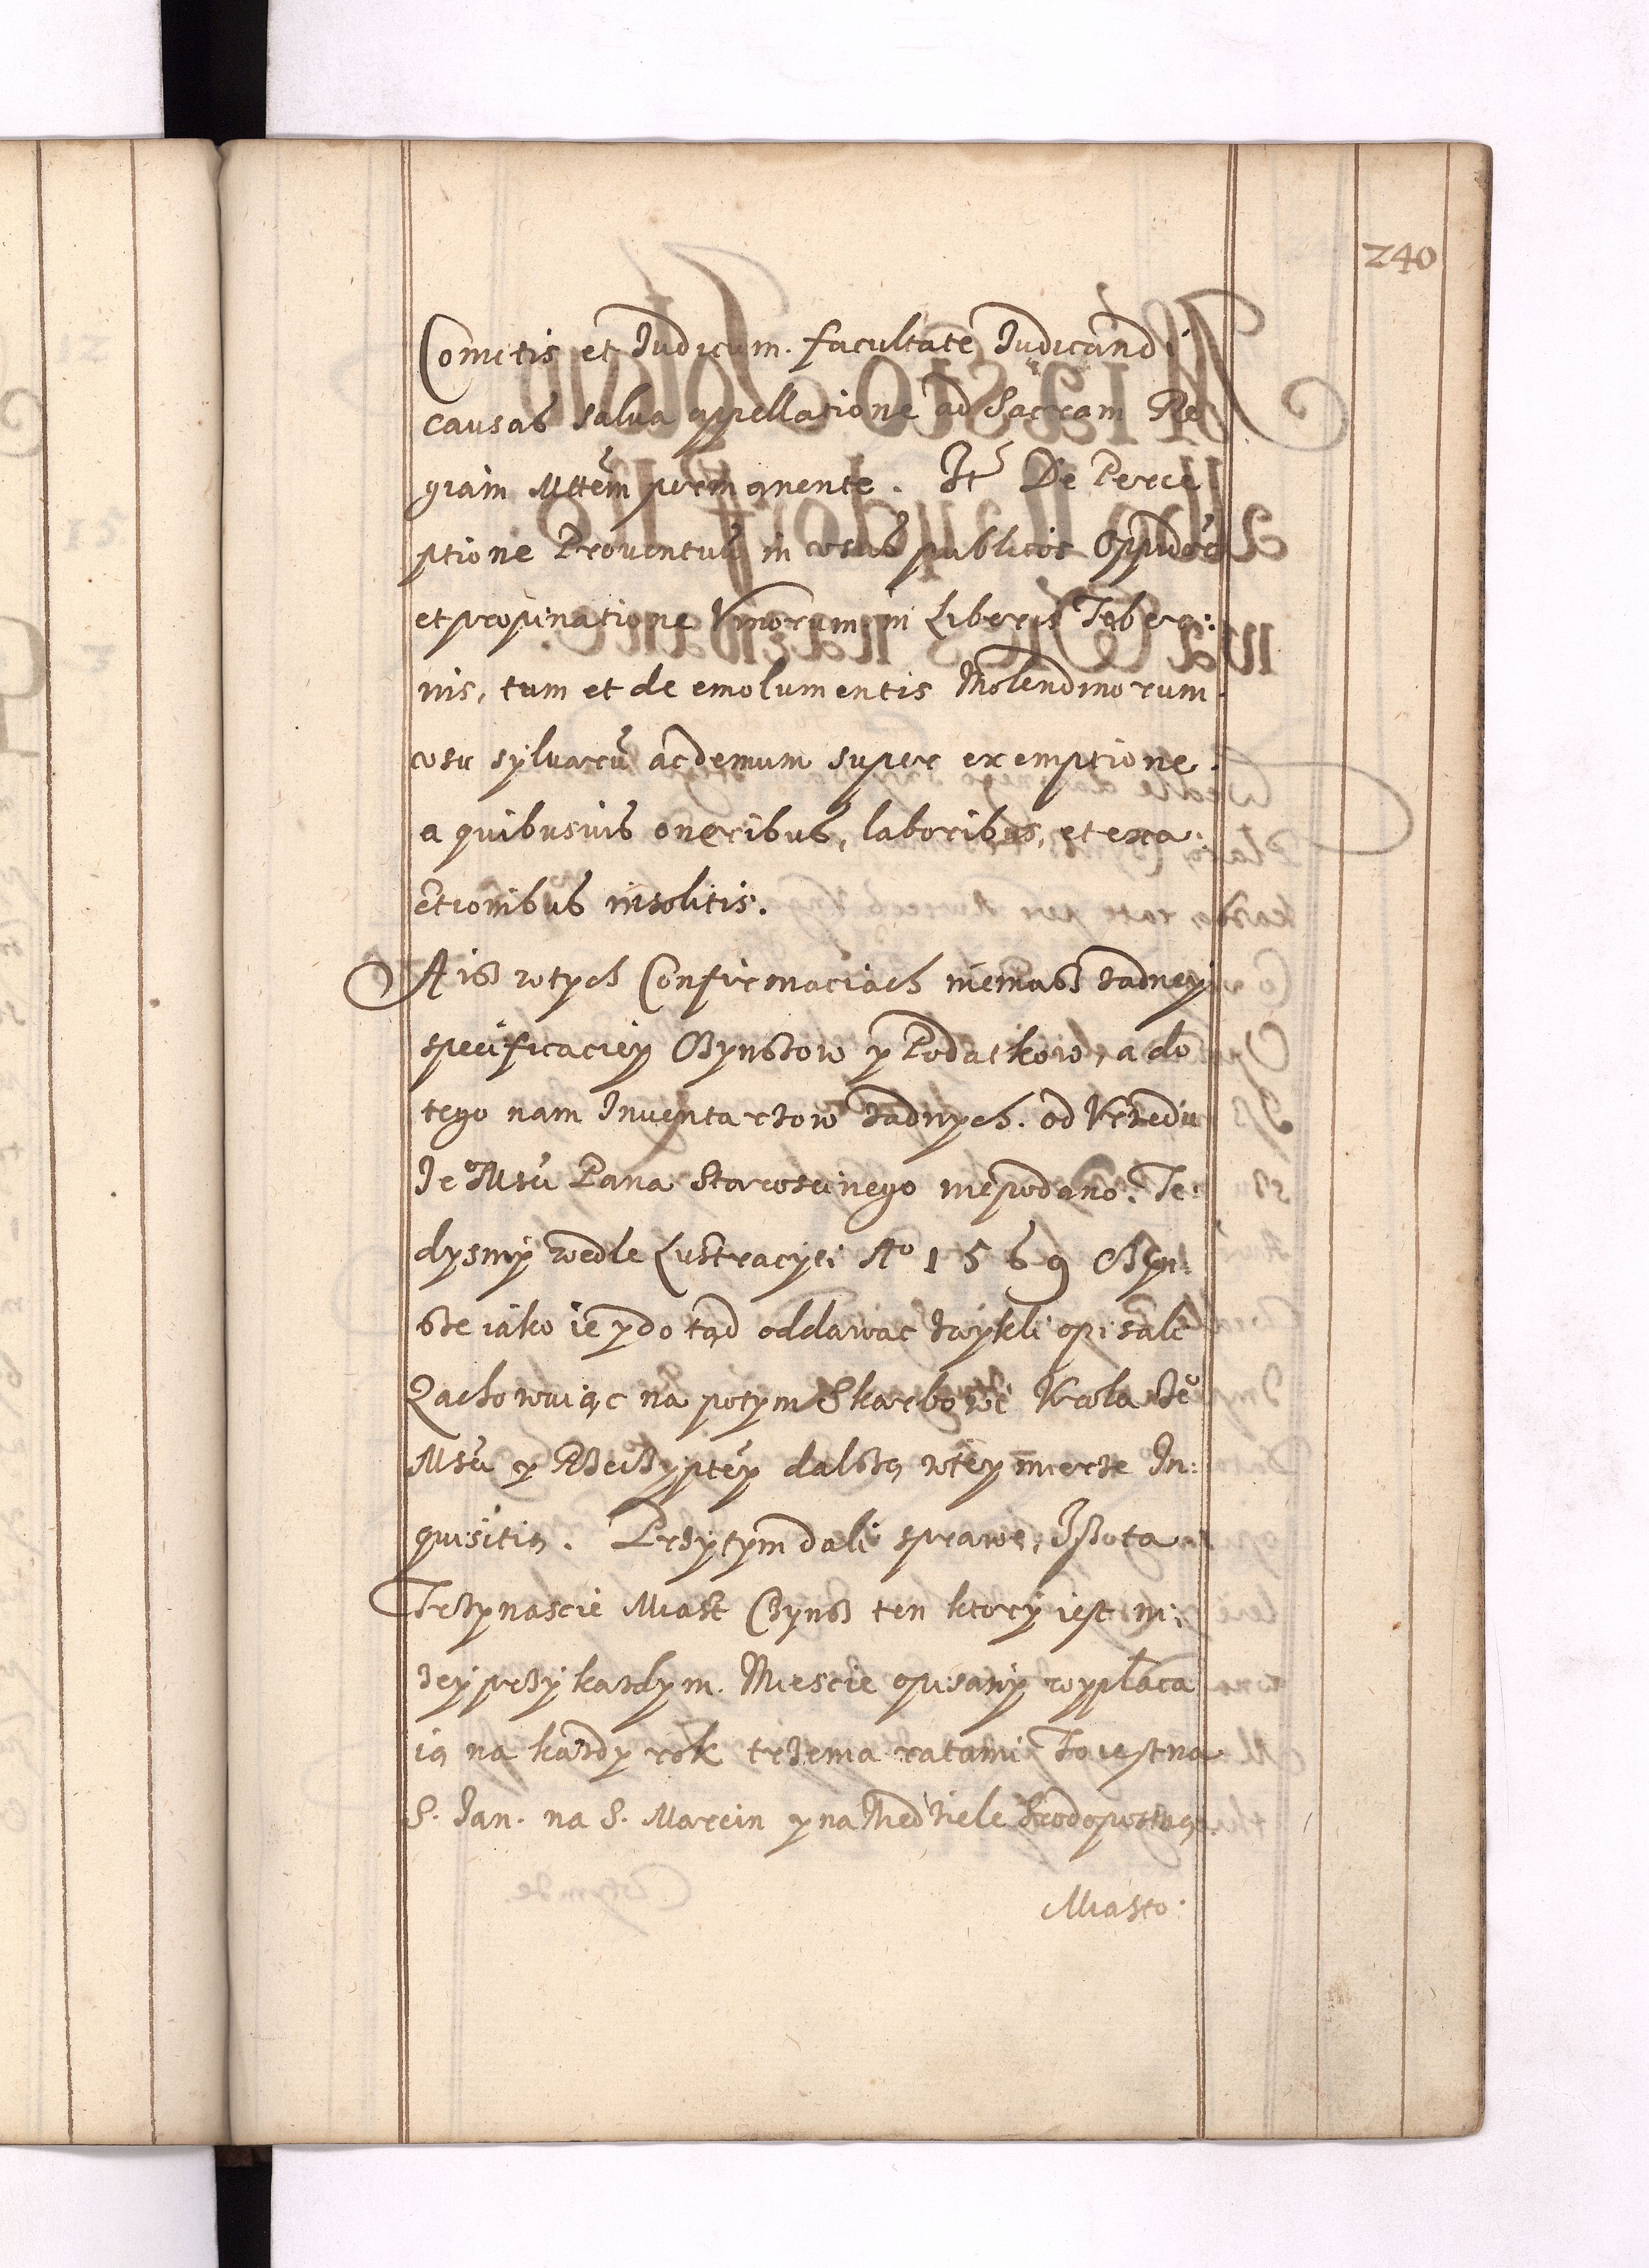 240
Comitis et Judicum. facultate Judicandi
causas salva appellatione ad Sacram Re
giam Mttem permanente. It De Perce
ptione Proventuu in usus publicos Oppidor
et propinatione Vinorum in Liberis Taber:
nis, tum et de emolumentis Molendinorum.
usu sylvaru ac demum super exemptione
a quibusvis oneribus, laboribus, et exa:
ctionibus insolitis.
A iß wtych Confirmaciach niemaß zadney
specificaciey Czynßow y Podatkow, a do
tego nam Inventarzow zadnych. od Vrzedu
Je Msci Pana Staroscinego niepodano. Te:
dysmy wedle Lustracyei Ao 1569 Czyn:
ße iako ie y do tąd oddawac zwykli opisali
Zachowuiąc na potym Skarbowi Krola Je
Msci y Rzeczyptey dalszą wtey mierze In:
quisitią. Przytym dali sprawe, Iß ta
Trzynascie Miast Czynß ten ktory iest ni:
zey przy kazdym. Miescie opisany wypłaca
ią na kazdy rok trzema ratami To iest na
S. Jan. na S. Marcin y na Niedziele Srodopostną.
Miasto.